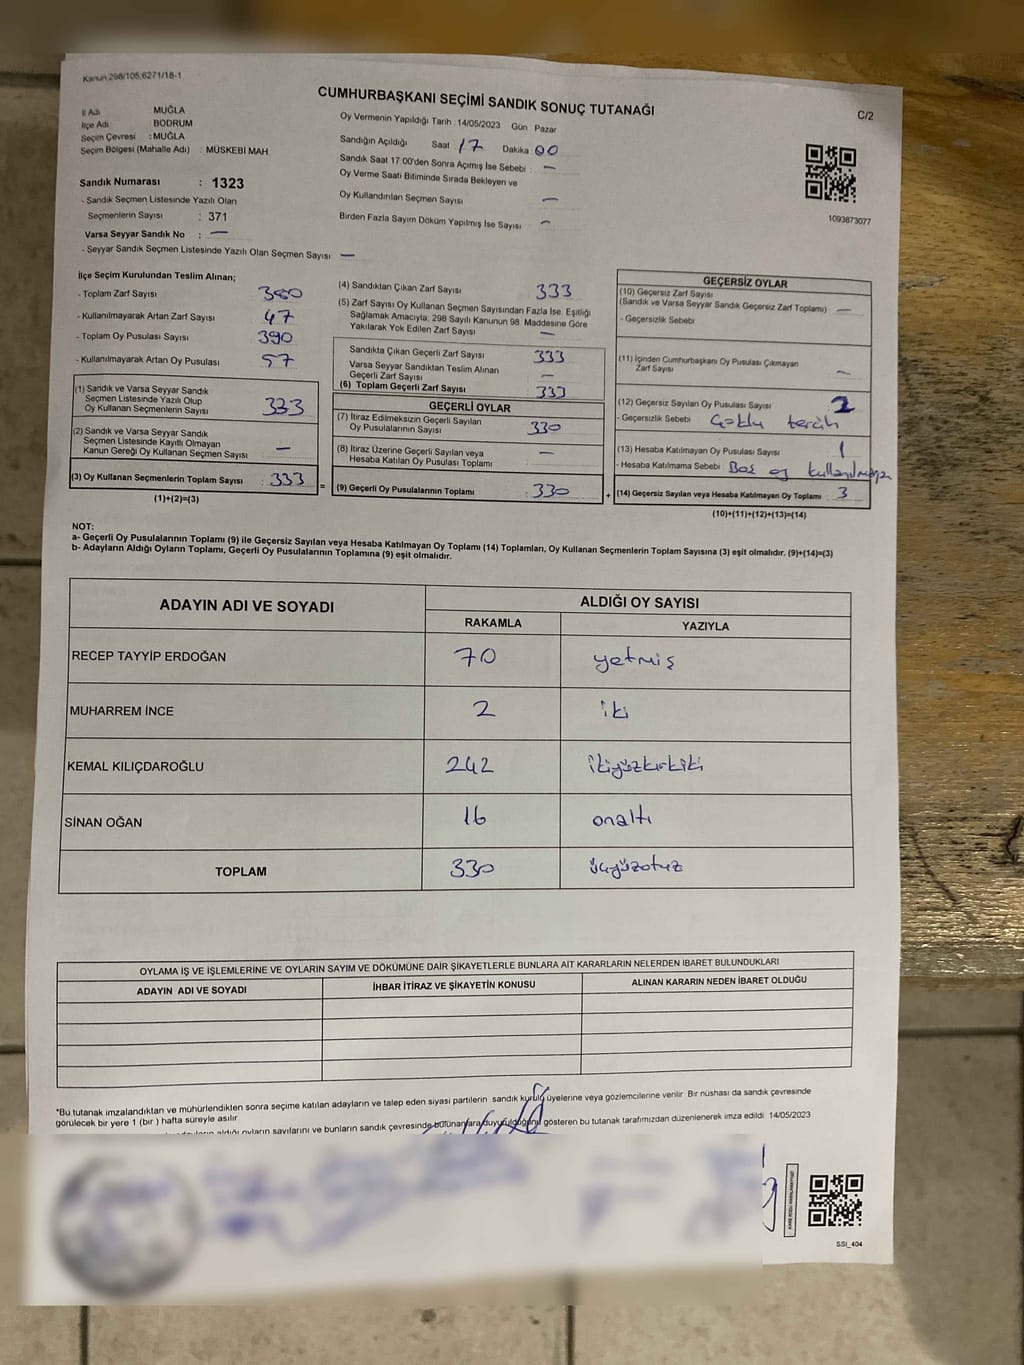 Kanun 298/105,6271/18-1
CUMHURBAŞKANI SEÇİMİ SANDIK SONUÇ TUTANAĞI
C/2
İl Adı MUĞLA
İlçe Adı BODRUM
Seçim Çevresi : MUĞLA
Seçim Bölgesi (Mahalle Adı) : MÜSKEBİ MAH.
Sandık Numarası : 1323
- Sandık Seçmen Listesinde Yazılı Olan
Seçmenlerin Sayısı : 371
Varsa Seyyar Sandık No : —
- Seyyar Sandık Seçmen Listesinde Yazılı Olan Seçmen Sayısı : —
Oy Vermenin Yapıldığı Tarih : 14/05/2023 Gün Pazar
Sandığın Açıldığı Saat 17 Dakika 00
Sandık Saat 17:00'den Sonra Açımış İse Sebebi : —
Oy Verme Saati Bitiminde Sırada Bekleyen ve
Oy Kullandırılan Seçmen Sayısı —
Birden Fazla Sayım Döküm Yapılmış İse Sayısı —
1093873077
İlçe Seçim Kurulundan Teslim Alınan;
- Toplam Zarf Sayısı 380
- Kullanılmayarak Artan Zarf Sayısı 47
- Toplam Oy Pusulası Sayısı 390
- Kullanılmayarak Artan Oy Pusulası 57
(1) Sandık ve Varsa Seyyar Sandık
Seçmen Listesinde Yazılı Olup
Oy Kullanan Seçmenlerin Sayısı 333
(2) Sandık ve Varsa Seyyar Sandık
Seçmen Listesinde Kayıtlı Olmayan
Kanun Gereği Oy Kullanan Seçmen Sayısı —
(3) Oy Kullanan Seçmenlerin Toplam Sayısı : 333
(1)+(2)=(3)
(4) Sandıktan Çıkan Zarf Sayısı 333
(5) Zarf Sayısı Oy Kullanan Seçmen Sayısından Fazla İse, Eşitliği
Sağlamak Amacıyla; 298 Sayılı Kanunun 98. Maddesine Göre
Yakılarak Yok Edilen Zarf Sayısı —
Sandıkta Çıkan Geçerli Zarf Sayısı 333
Varsa Seyyar Sandıktan Teslim Alınan
Geçerli Zarf Sayısı —
(6) Toplam Geçerli Zarf Sayısı 333
GEÇERLİ OYLAR
(7) İtiraz Edilmeksizin Geçerli Sayılan
Oy Pusulalarının Sayısı 330
(8) İtiraz Üzerine Geçerli Sayılan veya
Hesaba Katılan Oy Pusulası Toplamı —
= (9) Geçerli Oy Pusulalarının Toplamı : 330
GEÇERSİZ OYLAR
(10) Geçersiz Zarf Sayısı
(Sandık ve Varsa Seyyar Sandık Geçersiz Zarf Toplamı) —
- Geçersizlik Sebebi
(11) İçinden Cumhurbaşkanı Oy Pusulası Çıkmayan
Zarf Sayısı —
(12) Geçersiz Sayılan Oy Pusulası Sayısı 2
- Geçersizlik Sebebi Çoklu tercih
(13) Hesaba Katılmayan Oy Pusulası Sayısı 1
- Hesaba Katılmama Sebebi Boş oy kullanılmayan
+ (14) Geçersiz Sayılan veya Hesaba Katılmayan Oy Toplamı : 3
(10)+(11)+(12)+(13)=(14)
NOT:
a- Geçerli Oy Pusulalarının Toplamı (9) ile Geçersiz Sayılan veya Hesaba Katılmayan Oy Toplamı (14) Toplamları, Oy Kullanan Seçmenlerin Toplam Sayısına (3) eşit olmalıdır. (9)+(14)=(3)
b- Adayların Aldığı Oyların Toplamı, Geçerli Oy Pusulalarının Toplamına (9) eşit olmalıdır.
ADAYIN ADI VE SOYADI
ALDIĞI OY SAYISI
RAKAMLA YAZIYLA
RECEP TAYYİP ERDOĞAN 70 yetmiş
MUHARREM İNCE 2 iki
KEMAL KILIÇDAROĞLU 242 ikiyüzkırkiki
SİNAN OĞAN 16 onaltı
TOPLAM 330 üçyüzotuz
OYLAMA İŞ VE İŞLEMLERİNE VE OYLARIN SAYIM VE DÖKÜMÜNE DAİR ŞİKAYETLERLE BUNLARA AİT KARARLARIN NELERDEN İBARET BULUNDUKLARI
ADAYIN ADI VE SOYADI İHBAR İTİRAZ VE ŞİKAYETİN KONUSU ALINAN KARARIN NEDEN İBARET OLDUĞU
*Bu tutanak imzalandıktan ve mühürlendikten sonra seçime katılan adayların ve talep eden siyasi partilerin sandık kurulu üyelerine veya gözlemcilerine verilir. Bir nüshası da sandık çevresinde
görülecek bir yere 1 (bir) hafta süreyle asılır.
aldığı oyların sayılarını ve bunların sandık çevresinde bulunanlara duyurulduğunu gösteren bu tutanak tarafımızdan düzenlenerek imza edildi. 14/05/2023
SSI_404